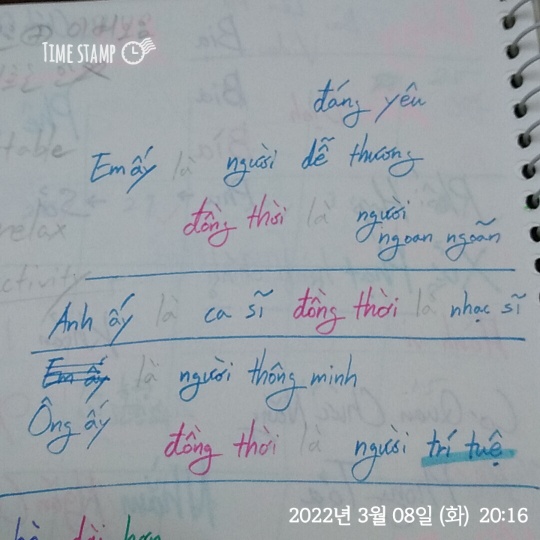 TIME STAMP
đáng yêu
Em ấy là người dễ thương
đồng thời là người
ngoan ngoãn
Anh ấy là ca sĩ đồng thời là nhạc sĩ
Em ấy là người thông minh
Ông ấy
đồng thời là người trí tuệ
table
relax
ctivity
2022년 3월 08일 (화) 20:16